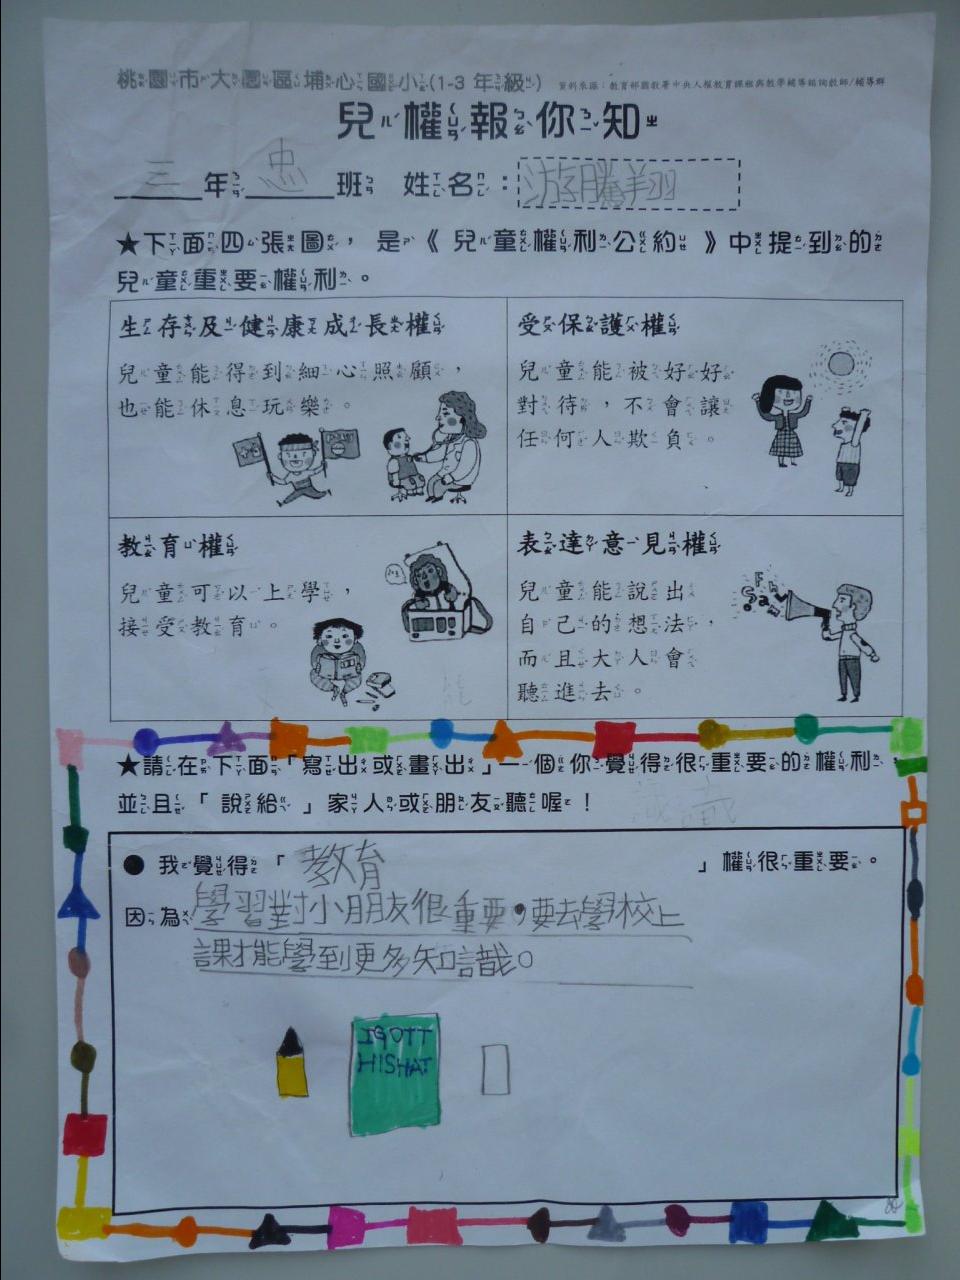 桃園市大園區埔心國小(1-3 年級) 資料來源：教育部國教署中央人權教育課程與教學輔導諮詢教師/輔導群
兒權報你知
三年忠班 姓名：游騰翔
★下面四張圖，是《兒童權利公約》中提到的
兒童重要權利。
生存及健康成長權
兒童能得到細心照顧，
也能休息玩樂。
受保護權
兒童能被好好
對待，不會讓
任何人欺負。
教育權
兒童可以上學，
接受教育。
表達意見權
兒童能說出
自己的想法，
而且大人會
聽進去。
★請在下面「寫出或畫出」一個你覺得很重要的權利，
並且「說給」家人或朋友聽喔！
●我覺得「教育」權很重要。
因為學習對小朋友很重要，要去學校上
課才能學到更多知識。
IGOTT
HISHAT